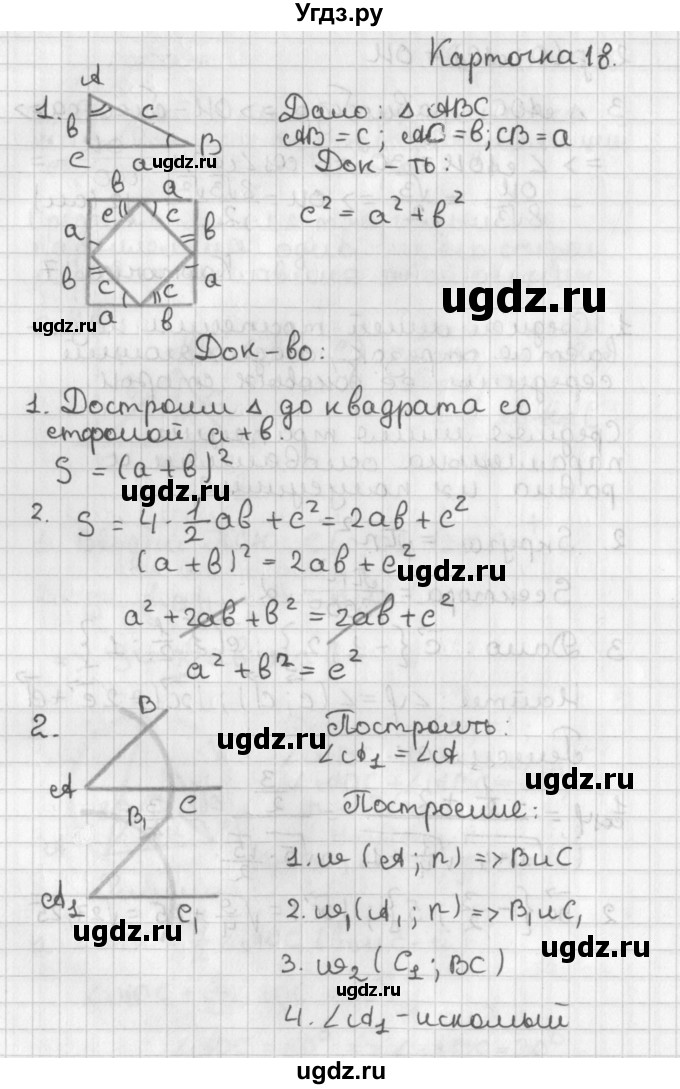 Угдз.ру
Карточка 18.
1.
A
в
c
C
a
B
Дано: △ ABC
AB = c; AC = в; CB = a
Док-ть:
c² = a² + в²
в a
a c c в
в c c a
a в
Док-во:
1. Достроим △ до квадрата со
стороной a + в.
S = (a + в)²
2. S = 4 · 1/2 aв + c² = 2aв + c²
(a + в)² = 2aв + c²
a² + 2aв + в² = 2aв + c²
a² + в² = c²
2.
B
A
C
B₁
A₁
C₁
Построить:
∠A₁ = ∠A
Построение:
1. w (A; r) => B и C
2. w₁(A₁; r) => B₁ и C₁
3. w₂ (C₁; BC)
4. ∠A₁ - искомый
ugdz.ru
ugdz.ru
ugdz.ru
ugdz.ru
ugdz.ru
ugdz.ru
ugdz.ru
ugdz.ru
ugdz.ru
ugdz.ru
ugdz.ru